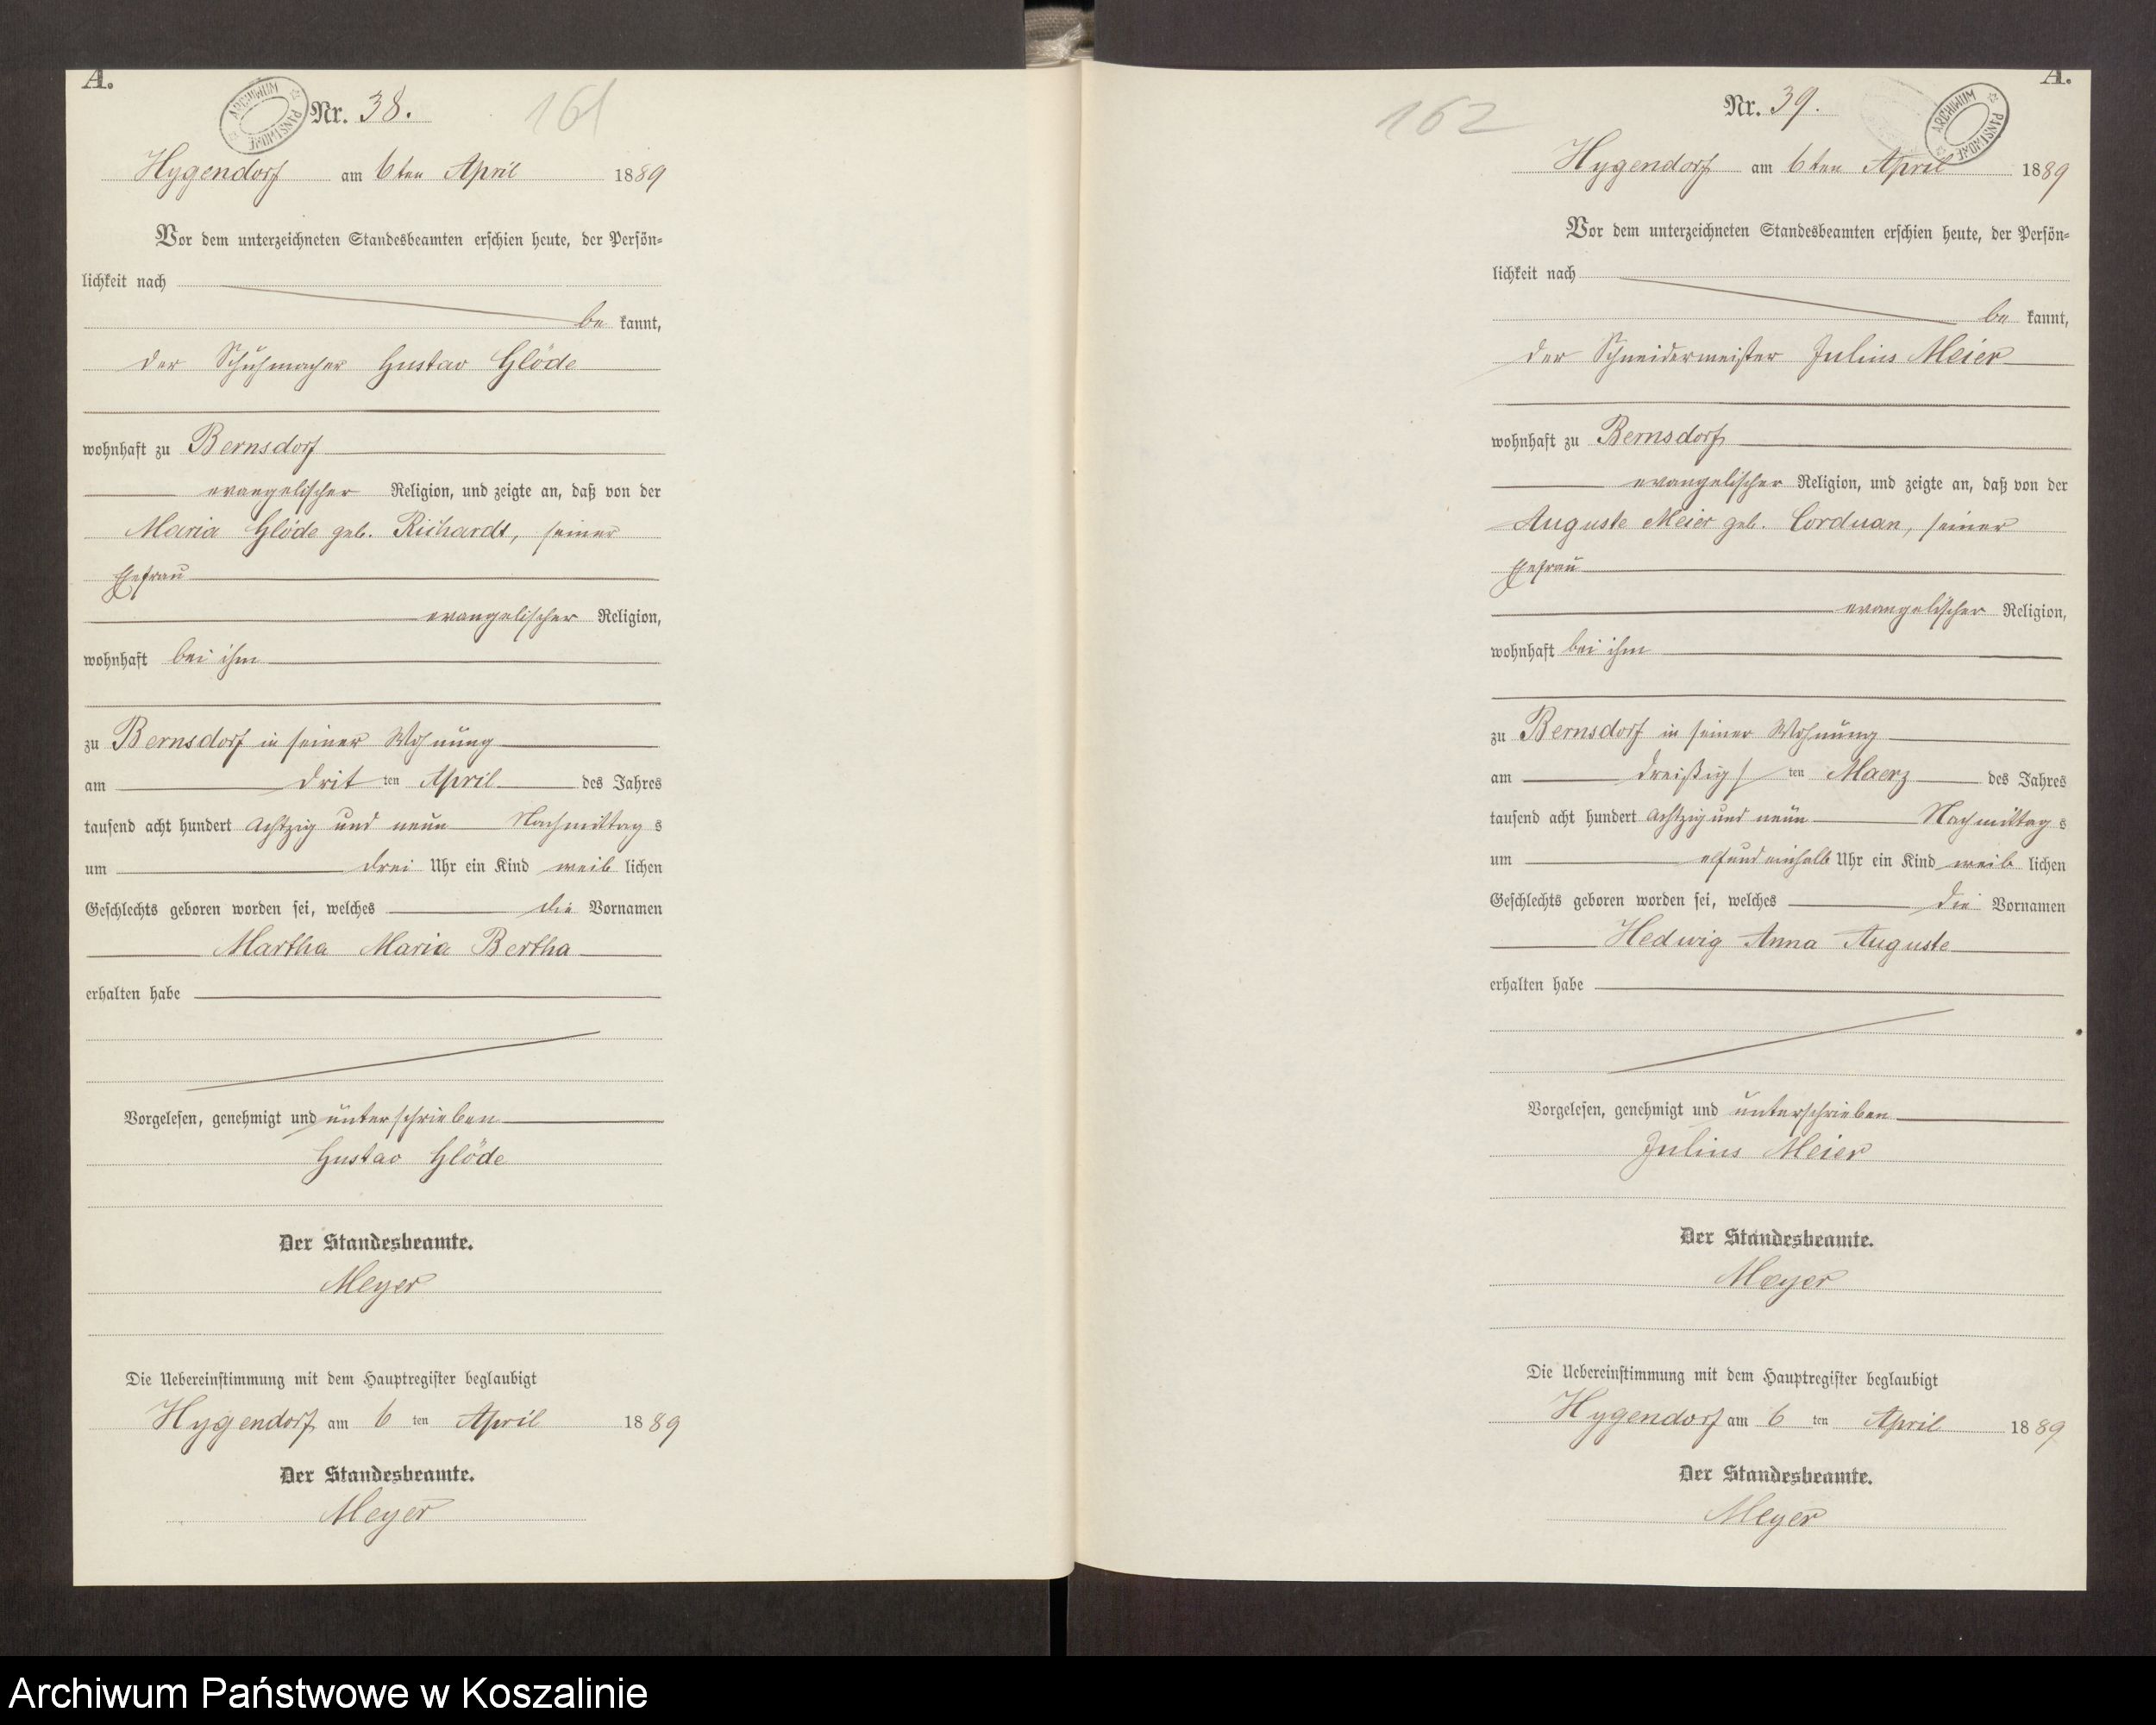 A.
ARCHIWUM PAŃSTWOWE
Nr. 38.
161
Hygendorf am 6ten April 1889
Vor dem unterzeichneten Standesbeamten erschien heute, der Persön-
lichkeit nach
be kannt,
der Schuhmacher Gustav Glöde
wohnhaft zu Bernsdorf
evangelischer Religion, und zeigte an, daß von der
Maria Glöde geb. Richardt, seiner
Ehefrau
evangelischer Religion,
wohnhaft bei ihm
zu Bernsdorf in seiner Wohnung
am drit ten April des Jahres
tausend acht hundert achtzig und neun Nachmittag s
um drei Uhr ein Kind weib lichen
Geschlechts geboren worden sei, welches die Vornamen
Martha Maria Bertha
erhalten habe
Vorgelesen, genehmigt und unterschrieben
Gustav Glöde
Der Standesbeamte.
Meyer
Die Uebereinstimmung mit dem Hauptregister beglaubigt
Hygendorf am 6 ten April 1889
Der Standesbeamte.
Meyer
A.
162
Nr. 39.
ARCHIWUM PAŃSTWOWE
Hygendorf am 6ten April 1889
Vor dem unterzeichneten Standesbeamten erschien heute, der Persön-
lichkeit nach
be kannt,
der Schneidermeister Julius Meier
wohnhaft zu Bernsdorf
evangelischer Religion, und zeigte an, daß von der
Auguste Meier geb. Corduan, seiner
Ehefrau
evangelischer Religion,
wohnhaft bei ihm
zu Bernsdorf in seiner Wohnung
am dreißigs ten Maerz des Jahres
tausend acht hundert achtzig und neun Nachmittag s
um elf und einhalb Uhr ein Kind weib lichen
Geschlechts geboren worden sei, welches die Vornamen
Hedwig Anna Auguste
erhalten habe
Vorgelesen, genehmigt und unterschrieben
Julius Meier
Der Standesbeamte.
Meyer
Die Uebereinstimmung mit dem Hauptregister beglaubigt
Hygendorf am 6 ten April 1889
Der Standesbeamte.
Meyer
Archiwum Państwowe w Koszalinie